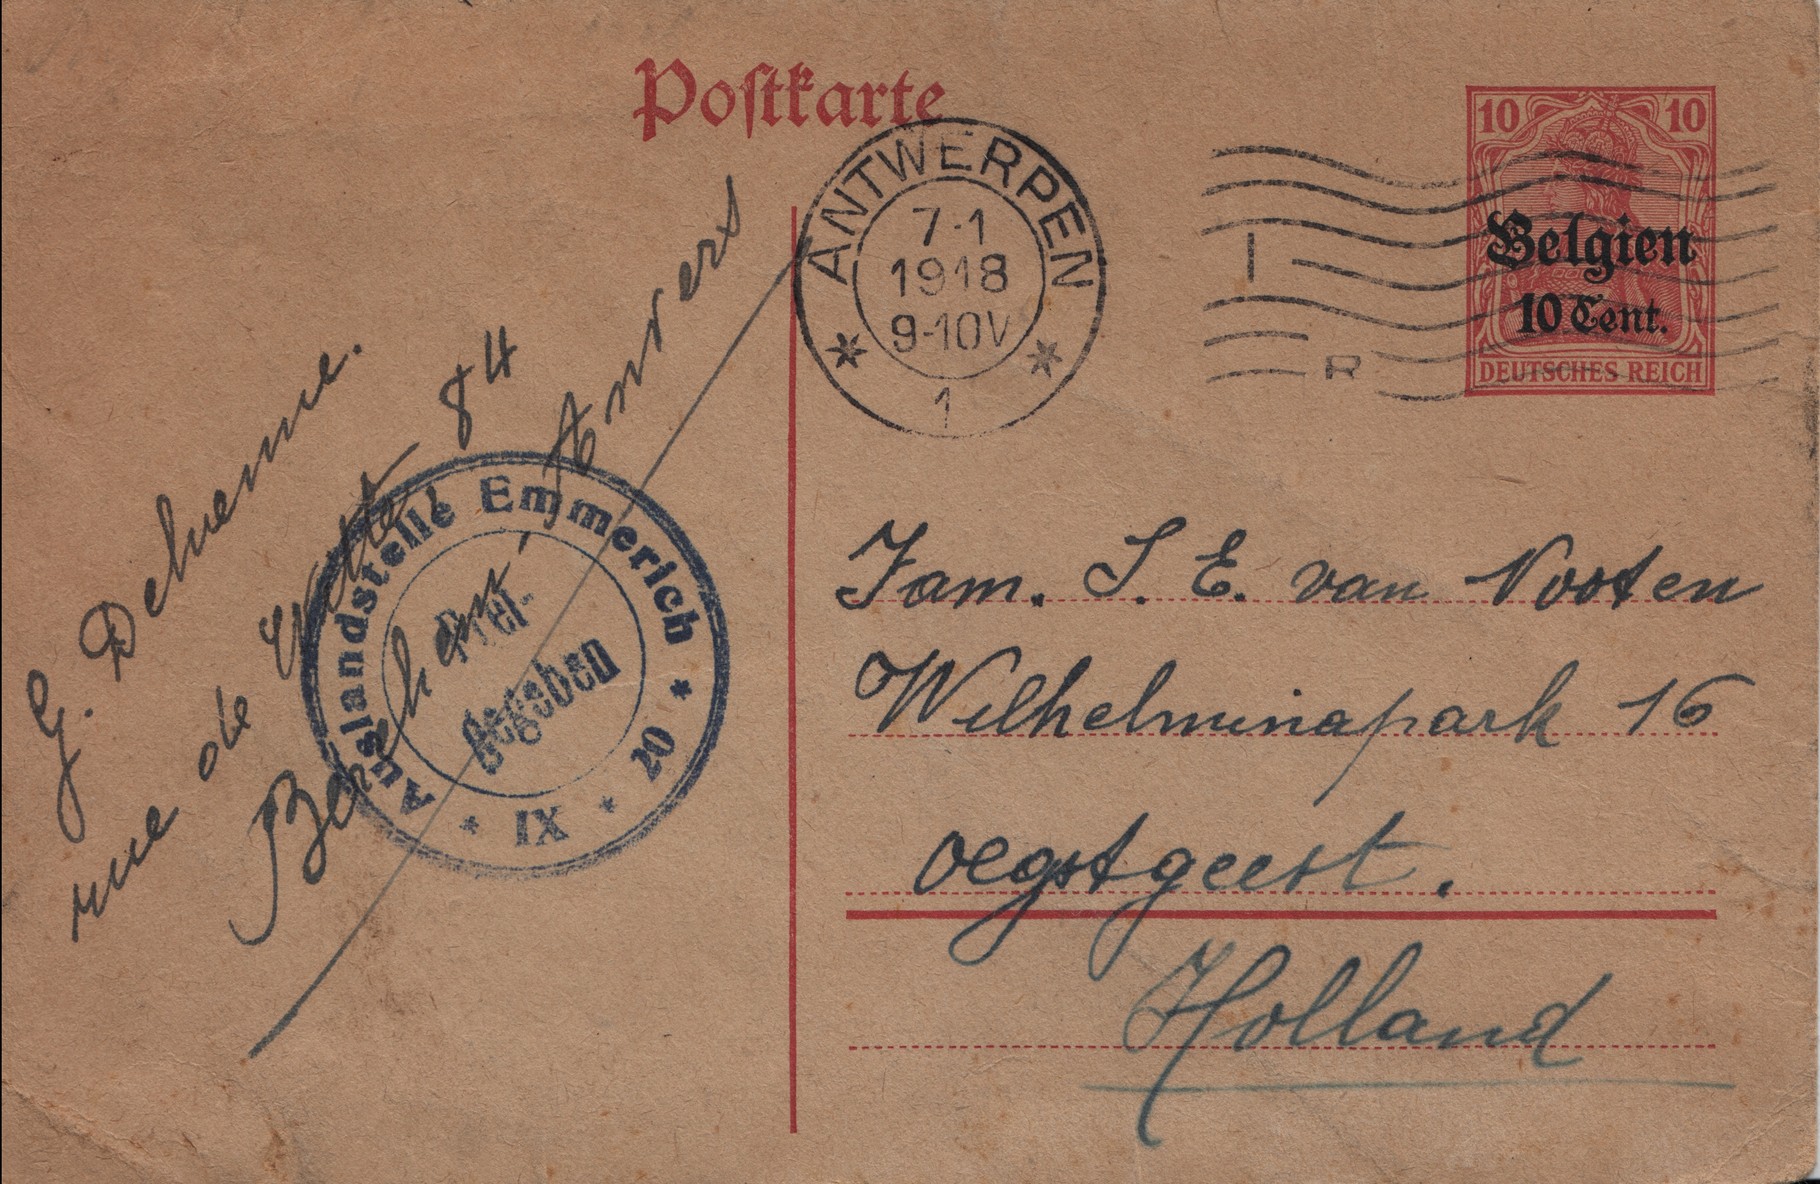 Postkarte
ANTWERPEN
7-1
1918
9-10V
1
10 10
Belgien
10 Cent.
DEUTSCHES REICH
G.
rue de 84
Berchem, Anvers
Auslandstelle Emmerich
Frei-
gegeben
* IX * 20 *
Fam. S. E. van Nooten
Wilhelminapark 16
Oegstgeest.
Holland